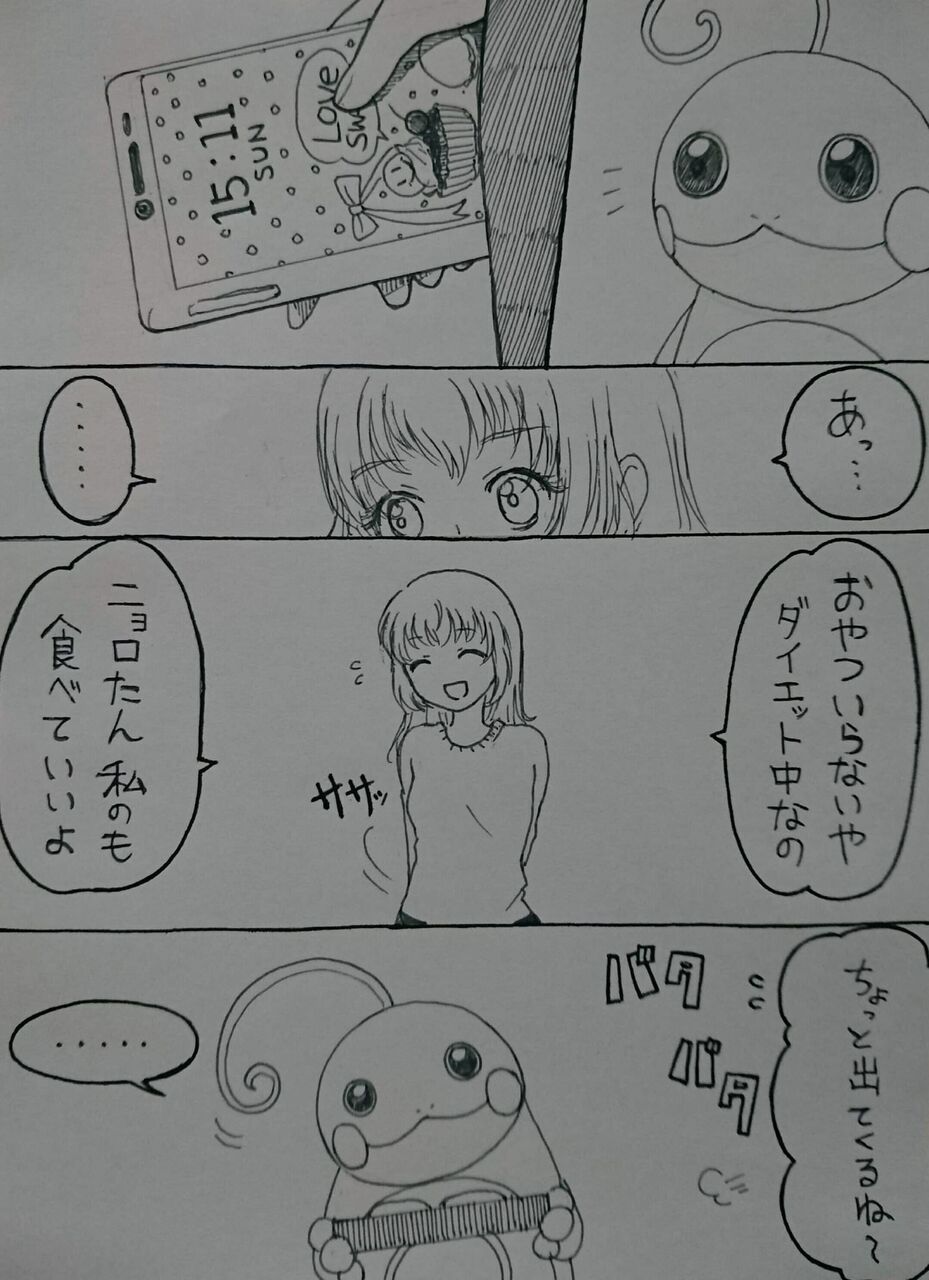 15:11
SUN
Love
SW
あっ…
・・・・・
おやついらないや
ダイエット中なの
ササッ
ニョロたん私のも
食べていいよ
ちょっと出てくるね～
バタ
バタ
・・・・・